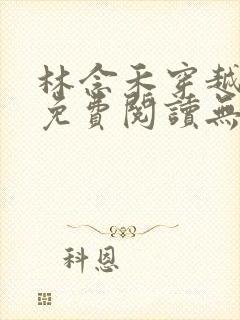 林念禾穿越
免費閱讀無
科恩